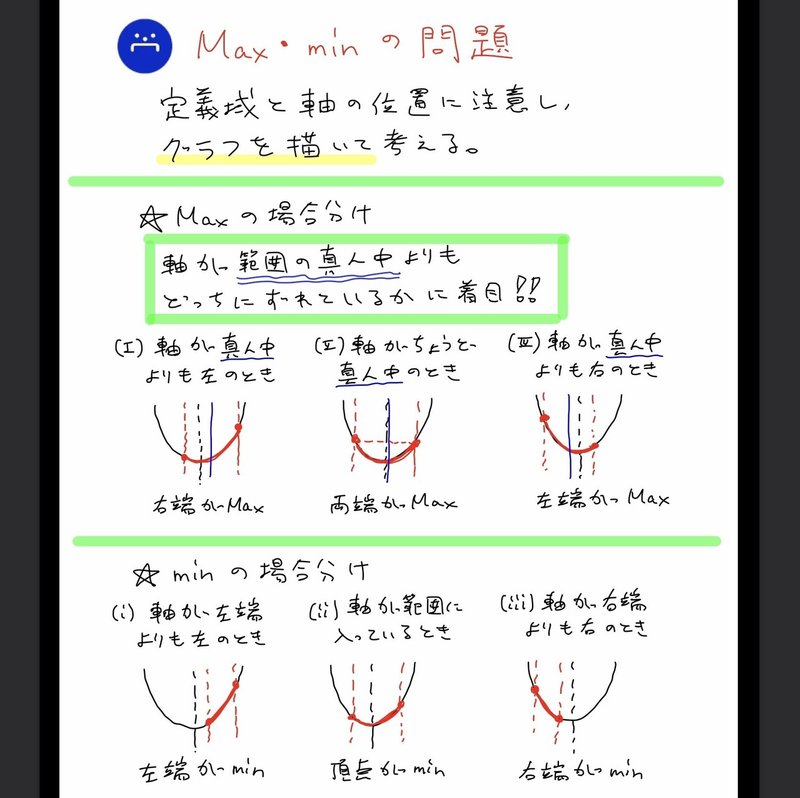 Max・minの問題
定義域と軸の位置に注意し、
グラフを描いて考える。
☆Maxの場合分け
軸が範囲の真ん中よりも
どっちにずれているかに着目!!
(I) 軸が真ん中
よりも左のとき
(II) 軸がちょうど
真ん中のとき
(III) 軸が真ん中
よりも右のとき
右端がMax
両端がMax
左端がMax
☆minの場合分け
(i) 軸が左端
よりも左のとき
(ii) 軸が範囲に
入っているとき
(iii) 軸が右端
よりも右のとき
左端がmin
頂点がmin
右端がmin